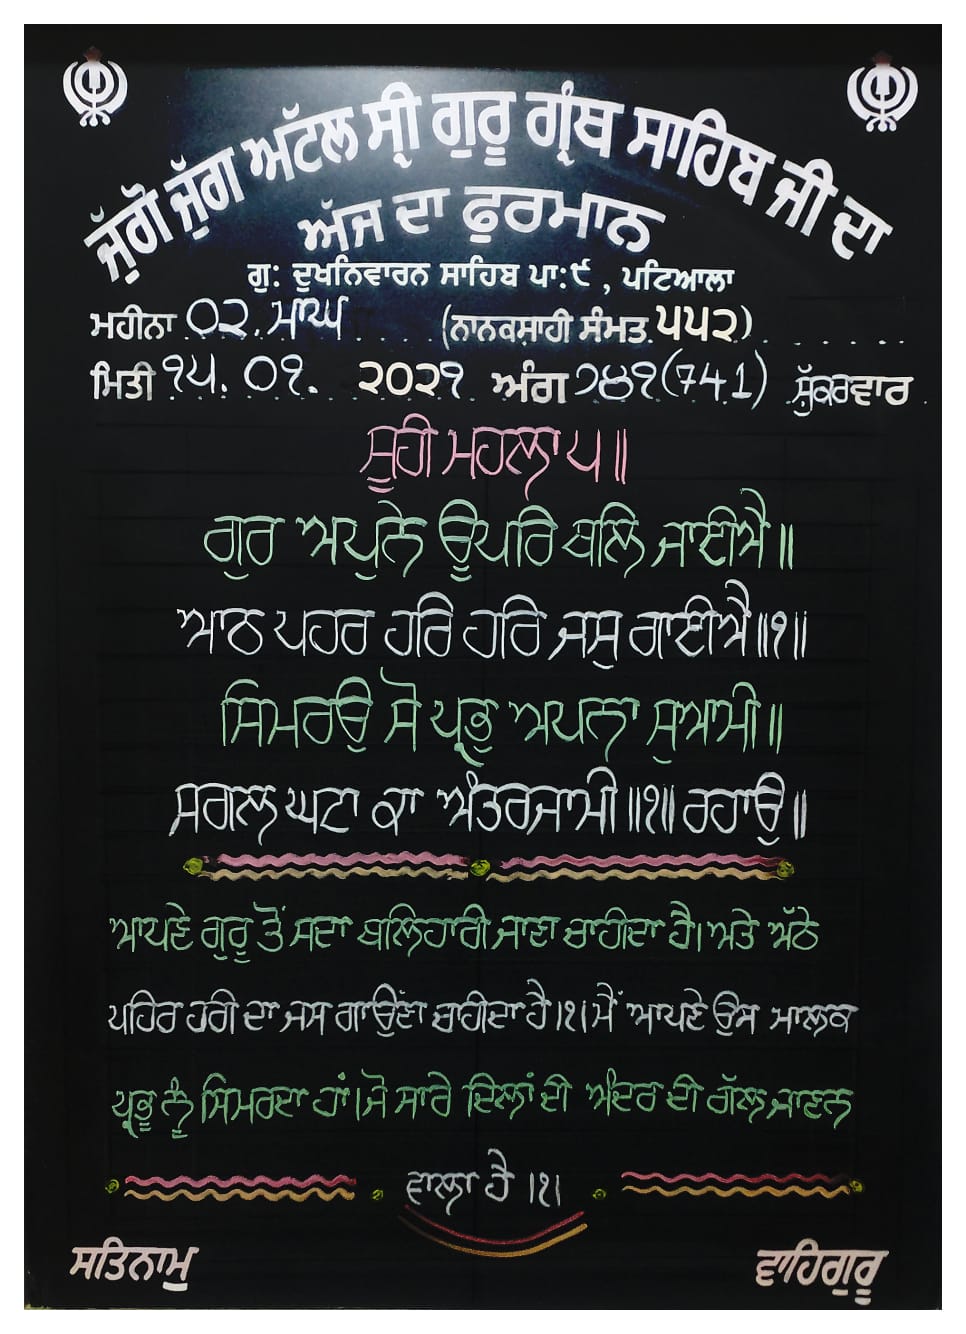 ਜੁੱਗੋ ਜੁੱਗ ਅਟੱਲ ਸ੍ਰੀ ਗੁਰੂ ਗ੍ਰੰਥ ਸਾਹਿਬ ਜੀ ਦਾ
ਅੱਜ ਦਾ ਫੁਰਮਾਨ
ਗੁ: ਦੁਖਨਿਵਾਰਨ ਸਾਹਿਬ ਪਾ:੯ , ਪਟਿਆਲਾ
ਮਹੀਨਾ ੦੨. ਮਾਘ (ਨਾਨਕਸਾਹੀ ਸੰਮਤ ੫੫੨)
ਮਿਤੀ ੧੫. ੦੧. ੨੦੨੧ ਅੰਗ ੭੪੧(741) ਸ਼ੁੱਕਰਵਾਰ
ਸੂਹੀ ਮਹਲਾ ੫॥
ਗੁਰ ਅਪੁਨੇ ਊਪਰਿ ਬਲਿ ਜਾਈਐ॥
ਆਠ ਪਹਰ ਹਰਿ ਹਰਿ ਜਸੁ ਗਾਈਐ॥੧॥
ਸਿਮਰਉ ਸੋ ਪ੍ਰਭੁ ਅਪਨਾ ਸੁਆਮੀ॥
ਸਗਲ ਘਟਾ ਕਾ ਅੰਤਰਜਾਮੀ॥੧॥ ਰਹਾਉ॥
ਆਪਣੇ ਗੁਰੂ ਤੋਂ ਸਦਾ ਬਲਿਹਾਰੀ ਜਾਣਾ ਚਾਹੀਦਾ ਹੈ। ਅਤੇ ਅੱਠੇ
ਪਹਿਰ ਹਰੀ ਦਾ ਜਸ ਗਾਉਣਾ ਚਾਹੀਦਾ ਹੈ।੧। ਮੈਂ ਆਪਣੇ ਉਸ ਮਾਲਕ
ਪ੍ਰਭੂ ਨੂੰ ਸਿਮਰਦਾ ਹਾਂ। ਜੋ ਸਾਰੇ ਦਿਲਾਂ ਦੀ ਅੰਦਰ ਦੀ ਗੱਲ ਜਾਣਨ
ਵਾਲਾ ਹੈ ।੧।
ਸਤਿਨਾਮੁ ਵਾਹਿਗੁਰੂ